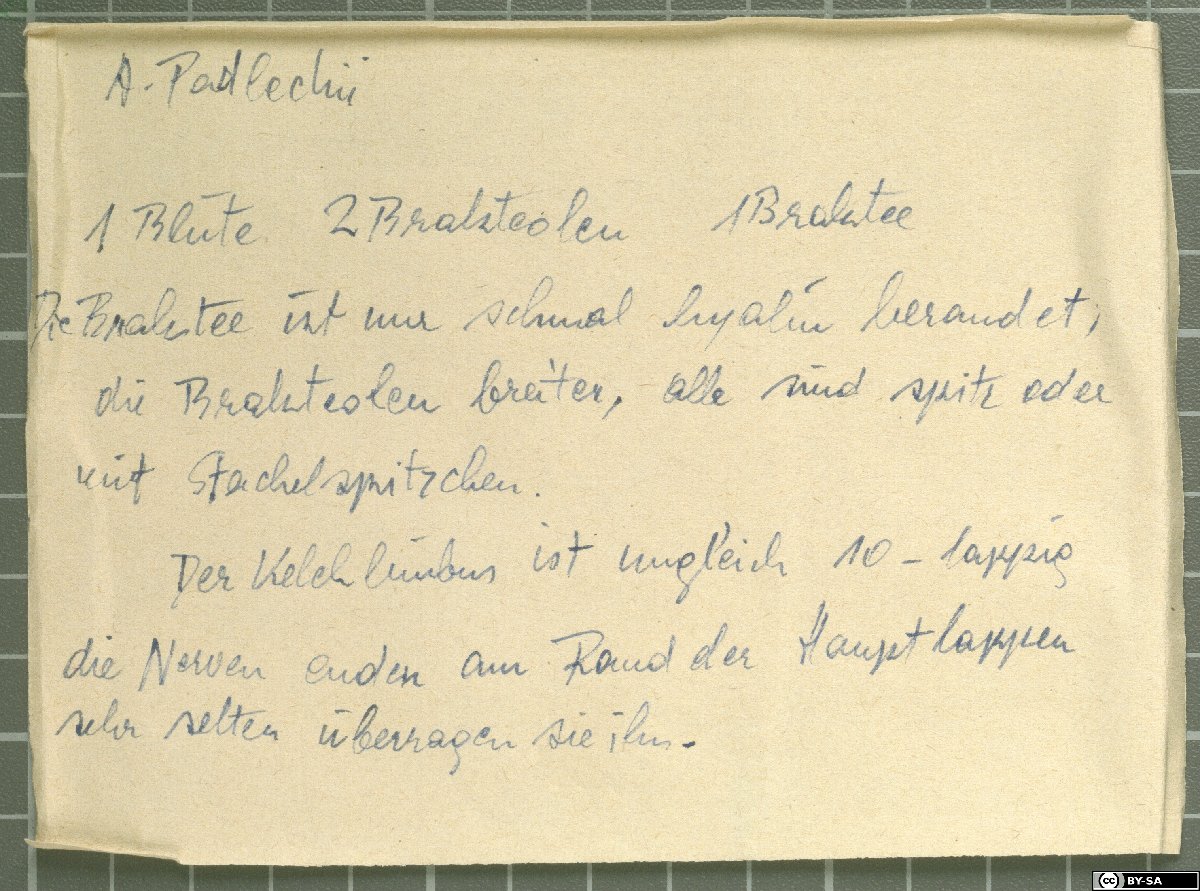 A. Podlechii
1 Blüte 2 Brakteolen 1 Braktee
Die Braktee ist nur schmal hyalin berandet,
die Brakteolen breiter, alle sind spitz oder
mit Stachelspitzchen.
Der Kelchlimbus ist ungleich 10-lappig
die Nerven enden am Rand der Hauptlappen
sehr selten überragen sie ihn.
CC BY-SA